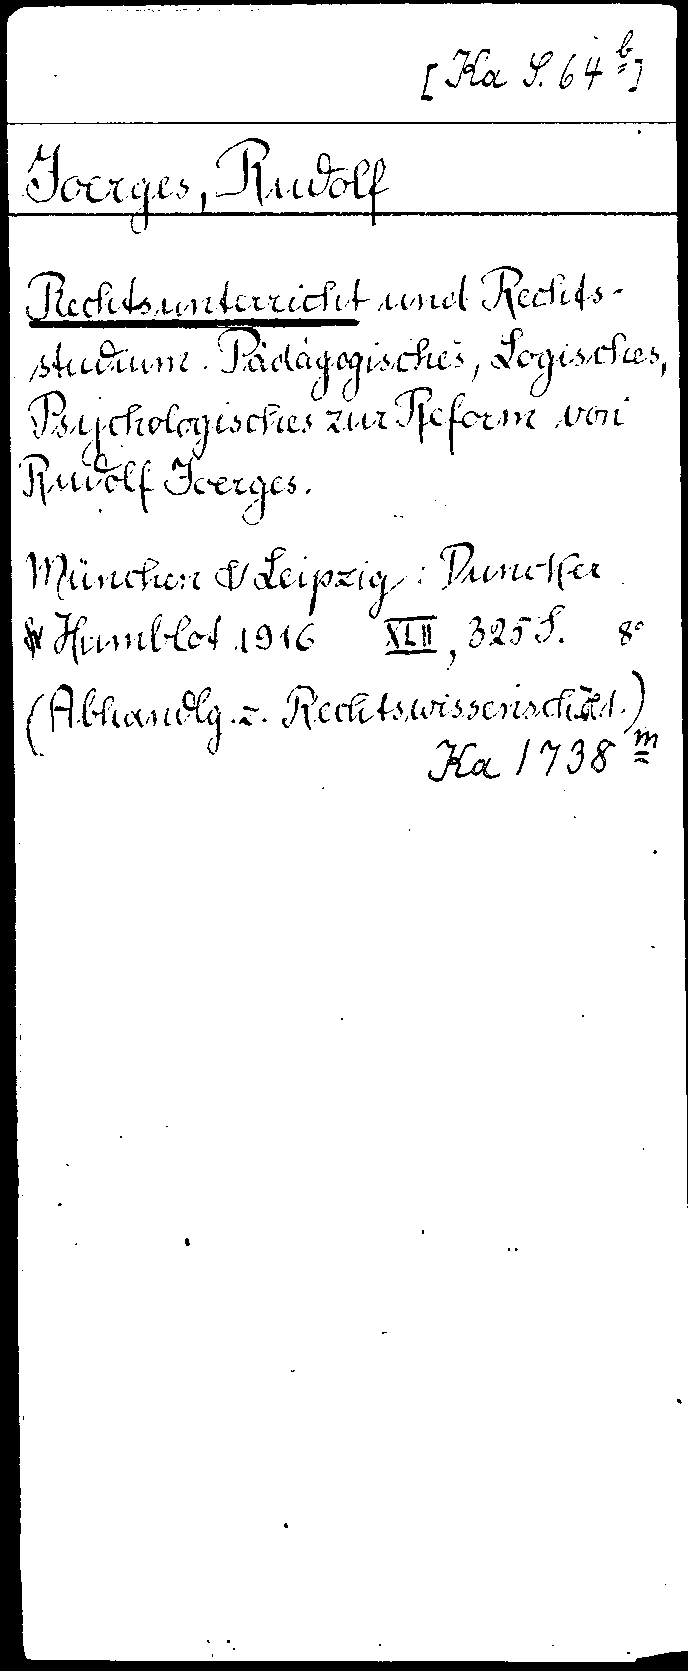 [Ka S. 64 b]
Joerges, Rudolf
Rechtsunterricht und Rechts-
studium. Pädagogisches, Logisches,
Psychologisches zur Reform von
Rudolf Joerges.
München & Leipzig: Duncker
& Humblot 1916 XLII, 325 S. 8°
(Abhandlg. z. Rechtswissenschaft.)
Ka 1738 m